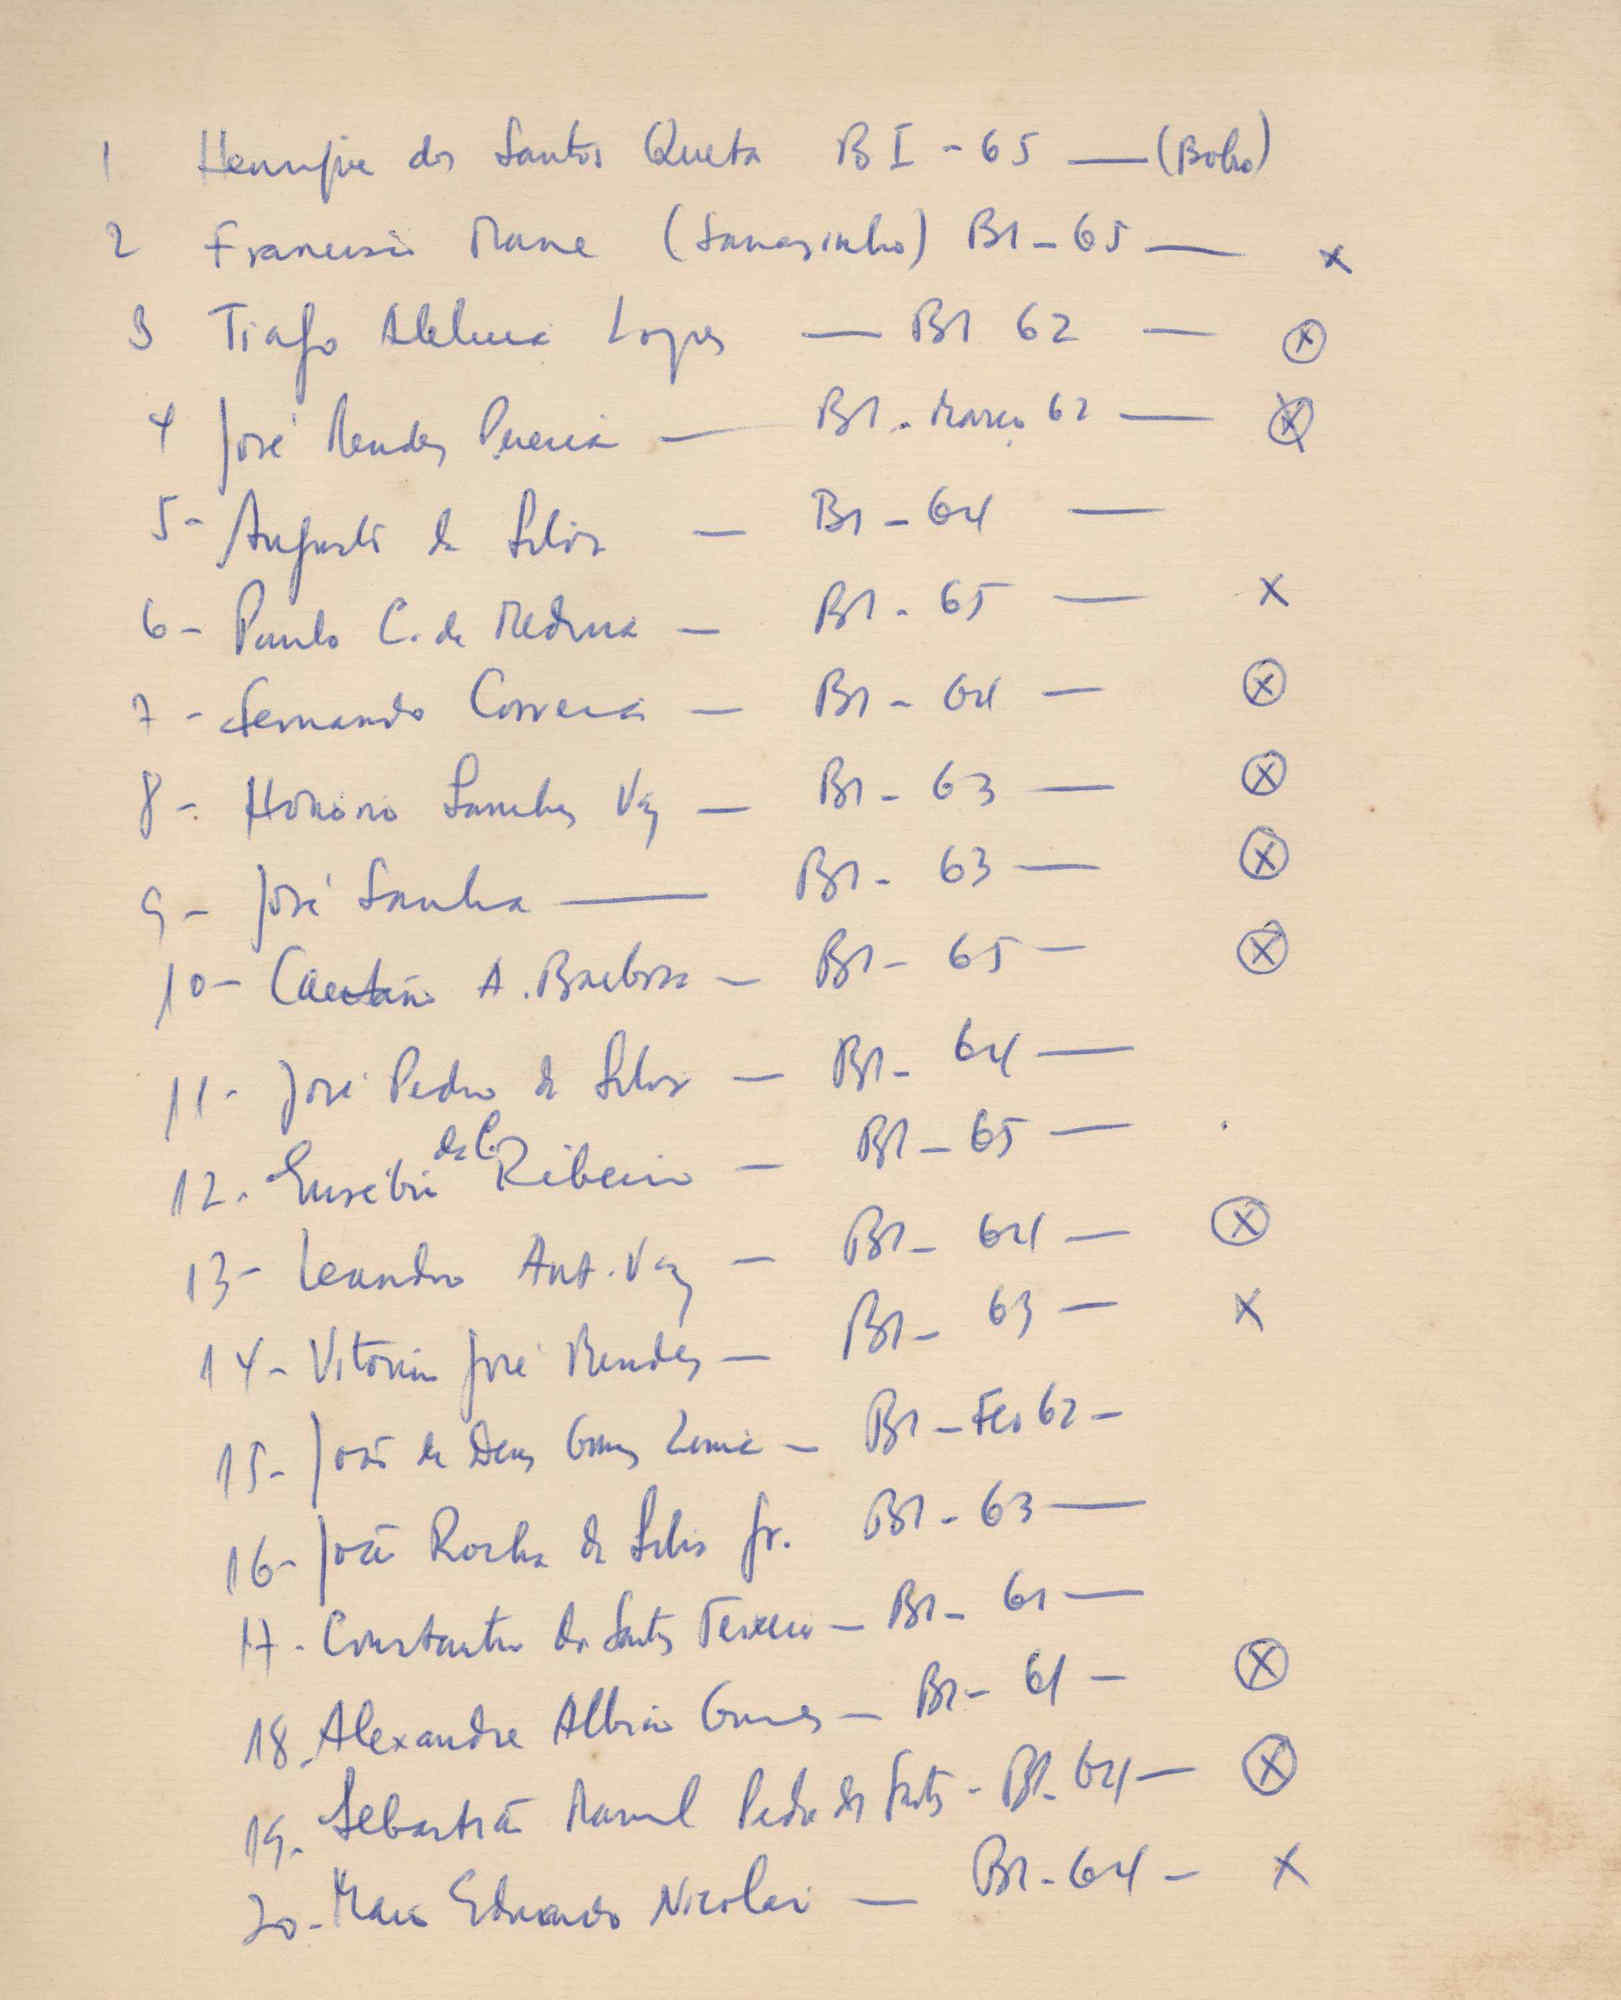 1 Henrique dos Santos Queta BI - 65 — (Bobo)
2 Francisco Mane (Sanazinho) BI - 65 — x
3 Tiago Aleluia Lopes — BI 62 — ⓧ
4 José Mendes Pereira — BI - Março 62 — ⓧ
5 - Augusto da Silva — BI - 64 —
6 - Paulo C. de Medina — BI - 65 — x
7 - Fernando Correia — BI - 64 — ⓧ
8 - Honório Sanches Vaz — BI - 63 — ⓧ
9 - José Sanha — BI - 63 — ⓧ
10 - Caetano A. Barbosa — BI - 65 — ⓧ
11 - José Pedro da Silva — BI - 64 —
12 - Eusébio da C. Ribeiro — BI - 65 —
13 - Leandro Ant. Vaz — BI - 64 — ⓧ
14 - Vitorino José Mendes — BI - 63 — x
15 - João de Deus Gomes — BI - Fev 62 —
16 - João Rocha da Silva Jr. BI - 63 —
17 - Constantino dos Santos Teixeira — BI - 61 —
18 - Alexandre Albino Gomes — BI - 61 — ⓧ
19 - Sebastião Manuel Pedro dos Santos - BI - 64 — ⓧ
20 - Mario Eduardo Nicolai — BI - 64 — x